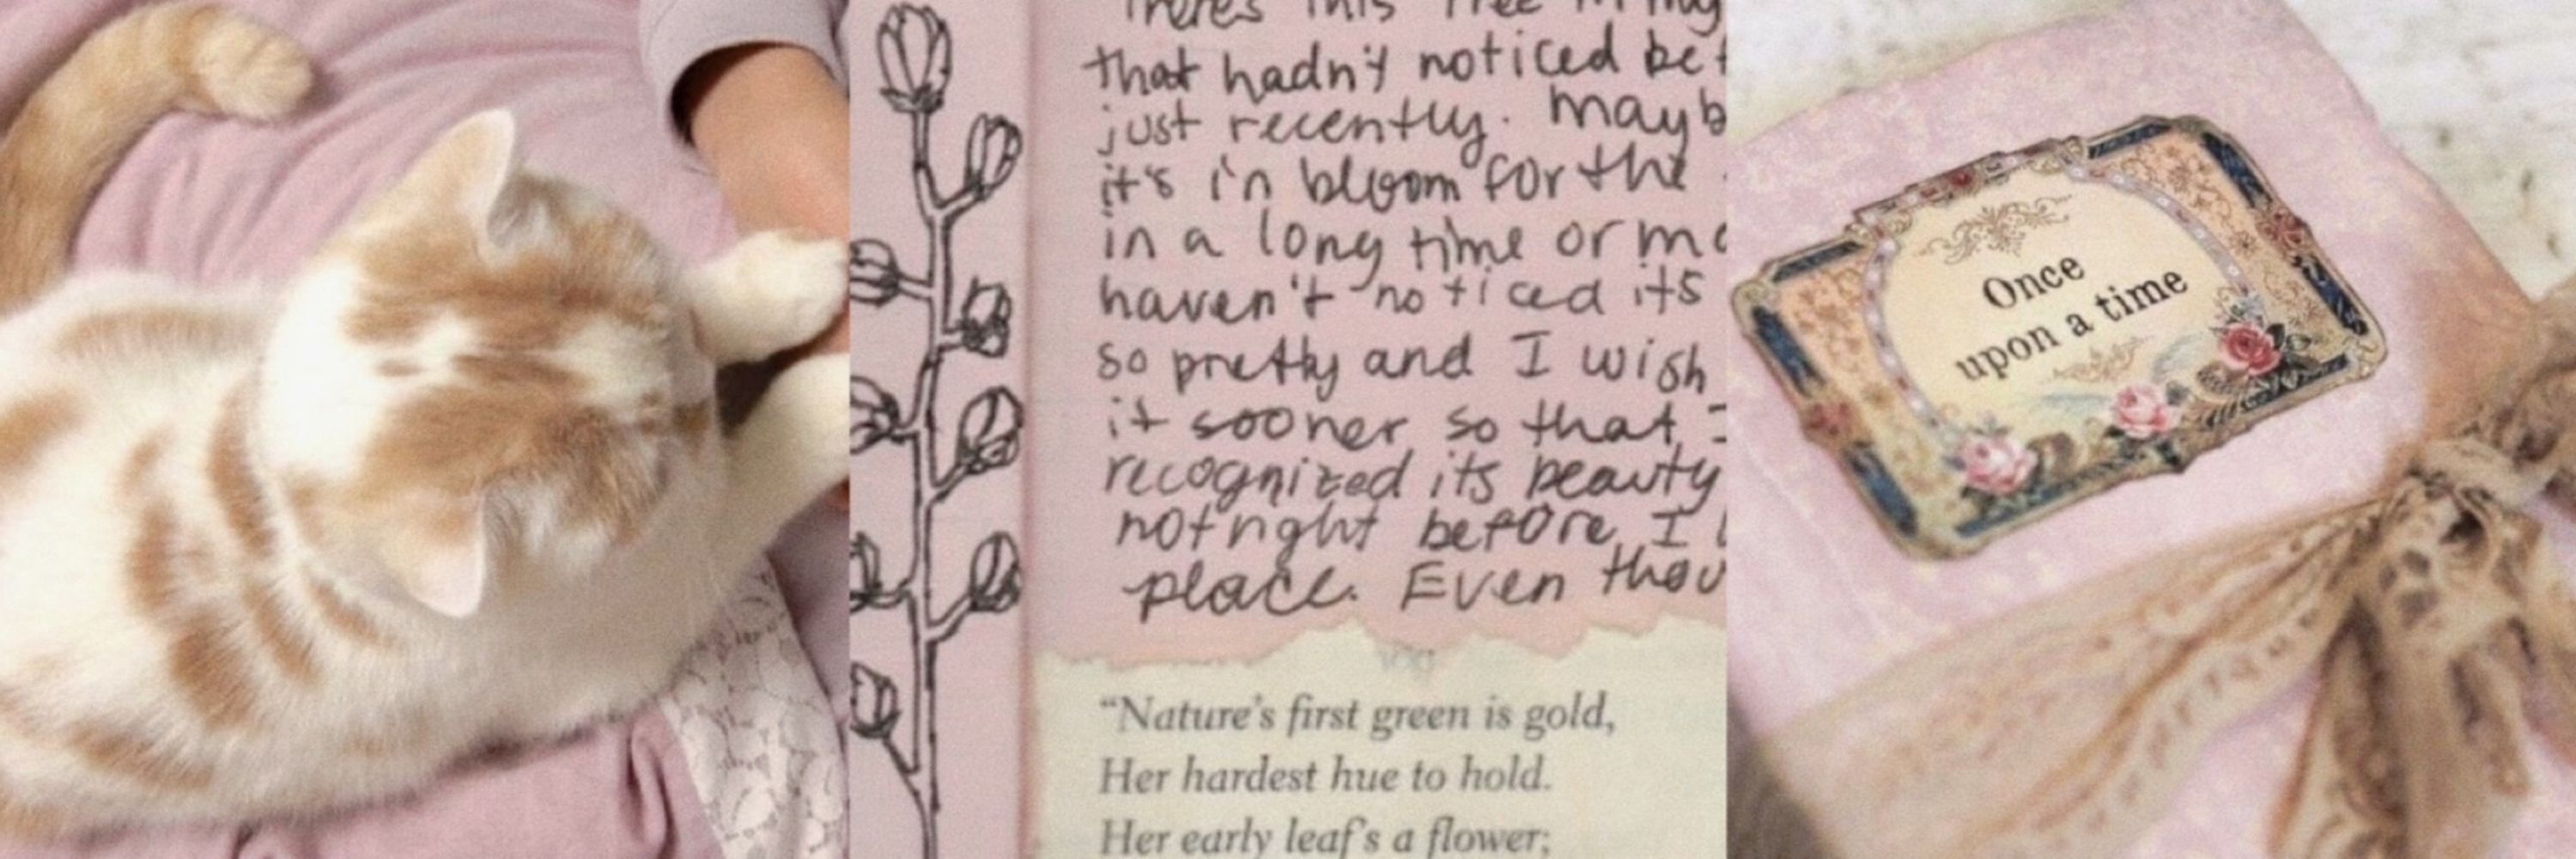 There's this tree in my
that hadn't noticed bef
just recently. mayb
it's in bloom for the
in a long time or ma
haven't noticed its
so pretty and I wish
it sooner so that I
recognized its beauty
not right before I l
place. Even thou
"Nature's first green is gold,
Her hardest hue to hold.
Her early leaf's a flower;
Once
upon a time